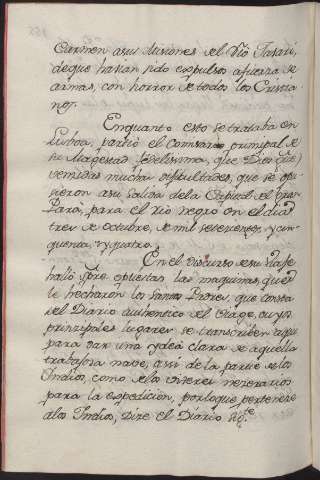 Carmen asus Misiones del Rio Javari,
de que havian sido expulsos afuerza de
armas, con horror de todos los Cristia
nos.
Enquanto esto se trataba en
Lisboa, partió el Comisario principal de
su Magestad fidelissima, que Dios gūe,
vencidas muchas dificultades, que se opu
sieron asu salida dela Capital del gran
Parà, para el Rio negro en el dia
tres de octubre, de mil setecientos, y cin
quenta, y quatro.
En el discurso de su viaje
hallò spre. opuestas las maquinas, que
le hecharon los Santos Padres, que consta
del Diario authentico del viage, cuyos
principales lugares se transcriben aqui
para dar una ydea clara de aquella
trabajosa nave, asi de la parte de los
Indios, como de los viveres necesarios
para la expedicion, por lo que pertenece
alos Indios, Dize el Diario